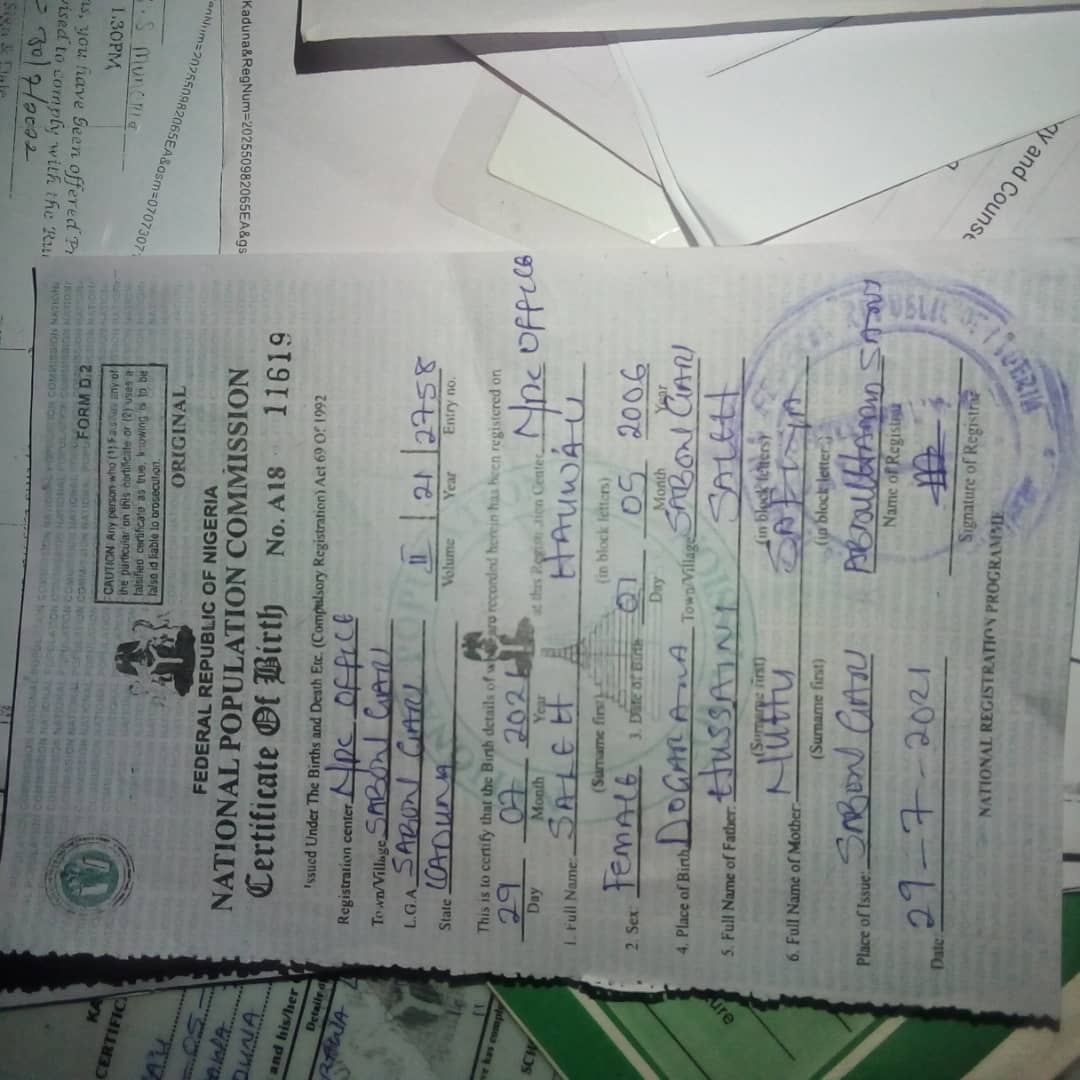 FORM D.2
CAUTION: Any person who (1) Falsifies any of
the particular on this certificate or (2) uses a
falsified certificate as true, knowing is to be
false id liable to prosecution.
ORIGINAL
FEDERAL REPUBLIC OF NIGERIA
NATIONAL POPULATION COMMISSION
Certificate Of Birth No. A18 11619
Issued Under The Births and Death Etc. (Compulsory Registration) Act 69 Of 1992
Registration center NPC OFFICE
Town/Village SABON GARI
L.G.A SABON GARI II 21 2758
State KADUNA Volume Year Entry no.
This is to certify that the Birth details of who are recorded herein has been registered on
29 07 2021 at this Registration Center NPC OFFICE
Day Month Year
1. Full Name: SALEH HAUWA'U
(Surname first) (in block letters)
2. Sex: FEMALE 3. Date of Birth 07 05 2006
Day Month Year
4. Place of Birth DOGARAWA Town/Village SABON GARI
5. Full Name of Father: HUSSAINI SALEH
(Surname first) (in block letters)
6. Full Name of Mother: NUHU SAFIYA
(Surname first) (in block letters)
Place of Issue: SABON GARI ABDULRAHMAN SANI
Name of Registrar
Date: 29-7-2021
Signature of Registrar
NATIONAL REGISTRATION PROGRAMME
REPUBLIC OF NIGERIA
1.30PM
us, you have been offered
vised to comply with the
30/7/2022
Sign & Date
enNum=202550982065EA&gsm=0707307
Kaduna&RegNum=202550982065EA&gs
gy and Couns
CERTIFIC
05
DUNA
and his/her
Details of
ve has comple
SCH
ure